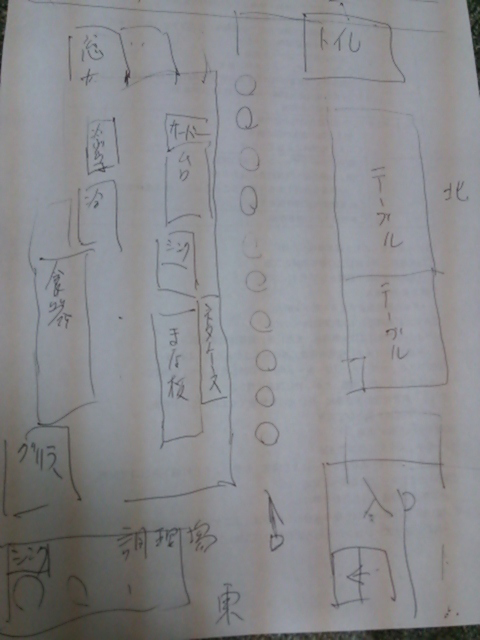 トイレ
冷
シンク
まな板
ネタケース
食器
グリラ
テーブル
テーブル
北
入口
調理場
シンク
東